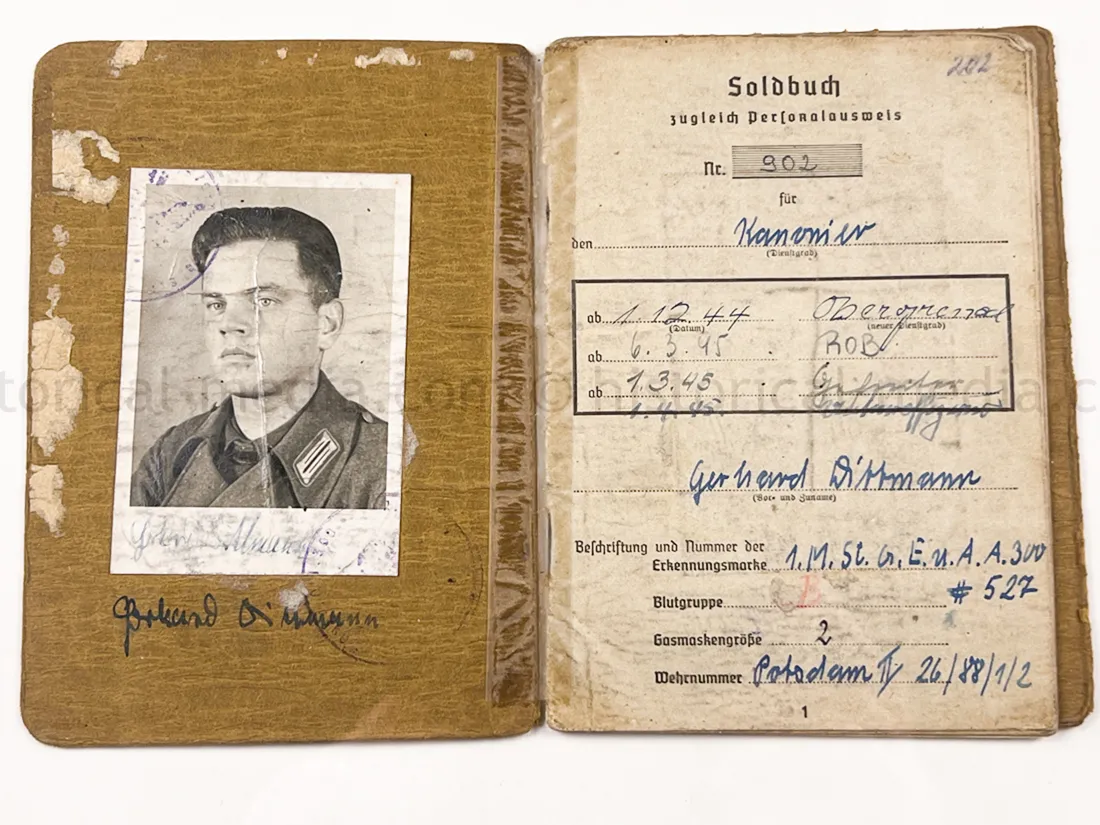 202
Soldbuch
zugleich Personalausweis
Nr. 902
für
den Kanonier
(Dienstgrad)
ab 1.12.44 Obergrenad
(Datum) (neuer Dienstgrad)
ab 6.3.45 ROB
ab 1.3.45 Gefreiter
1.4.45.
Gerhard Dittmann
(Vor- und Zuname)
Beschriftung und Nummer der
Erkennungsmarke 1. M. St. G. E. u. A. A. 300
# 527
Blutgruppe B
Gasmaskengröße 2
Wehrnummer Potsdam II 26/88/1/2
1
Gerhard Dittmann
torical-media.com © historical-media.c